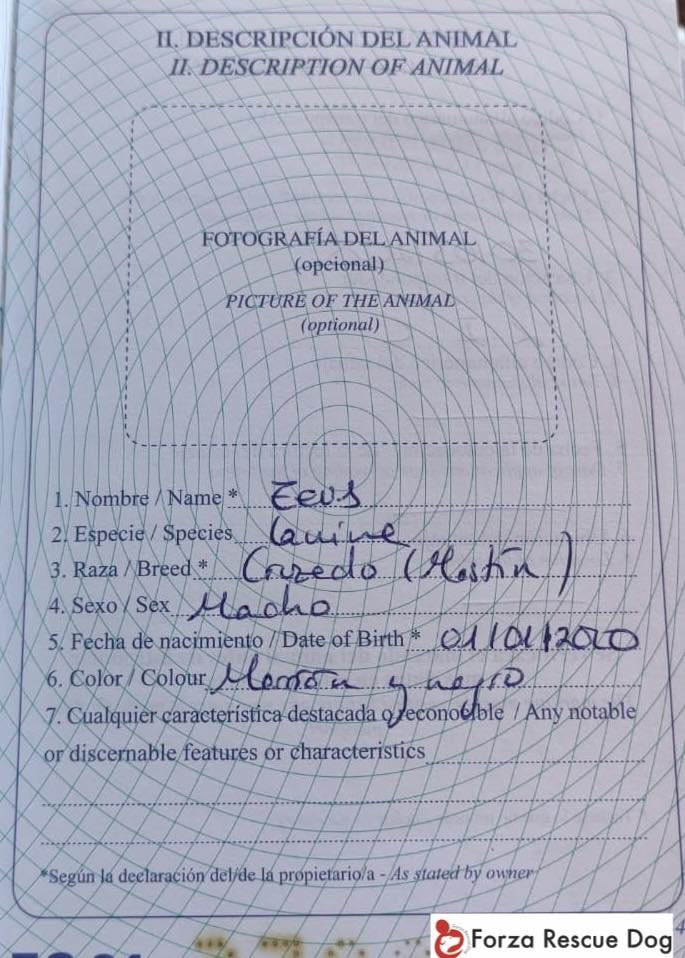 II. DESCRIPCIÓN DEL ANIMAL
II. DESCRIPTION OF ANIMAL
FOTOGRAFÍA DEL ANIMAL
(opcional)
PICTURE OF THE ANIMAL
(optional)
1. Nombre / Name *
2. Especie / Species Canine
3. Raza / Breed * Cruzado (Mastín)
4. Sexo / Sex Macho
5. Fecha de nacimiento / Date of Birth * 01/01/2020
6. Color / Colour Marrón y negro
7. Cualquier característica destacada o reconocible / Any notable
or discernable features or characteristics
*Según la declaración del/de la propietario/a - As stated by owner
4
Forza Rescue Dog